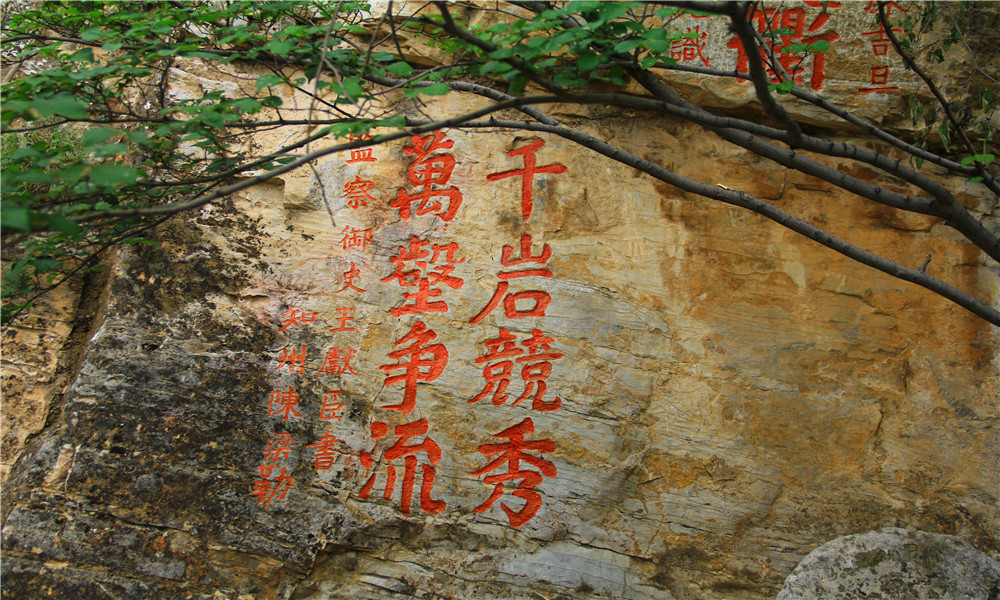 吉旦
識
千岩競秀
萬壑争流
監察御史王獻臣書
知州陳梁勒